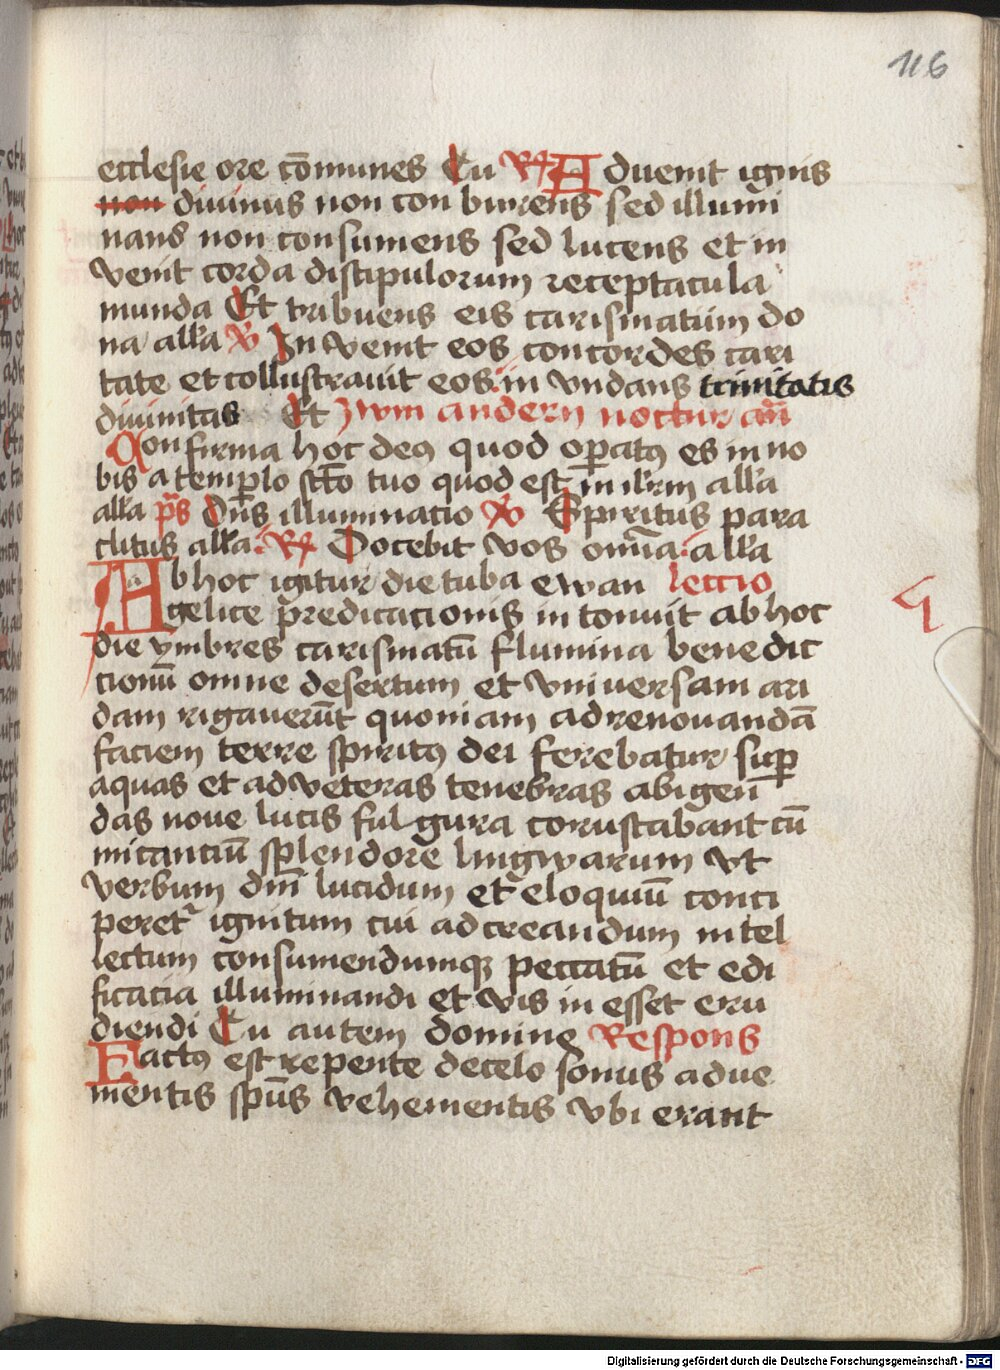 116
ecclesie ore cōmunes Tu R Aduenit ignis
non diuinus non conburens sed illumi
nans non consumens sed lucens et in
venit corda discipulorum receptacula
munda Et tribuens eis carismatum do
na allâ V Inuenit eos concordes cari
tate et collustrauit eos inundans trinitatis
diuinitas Et Zwm andern noctur añ
Confirma hoc deꝰ quod oꝑatꝰ es in no
bis a templo sc̄to tuo quod est in ilrm̄ allâ
allâ p̄s Dn̄s illuminatio V Spiritus para
clitus allâ R Docebit vos om̄ia allâ
Ab hoc igitur die tuba ewan lectio
gelice predicacionis intonuit ab hoc
die ymbres carismatū flumina benedic
tionū omne desertum et vniuersam ari
dam rigauerūt quoniam ad renouandā
faciem terre spiritꝰ dei ferebatur suꝑ
aquas et ad veteras tenebras abigen̄
das noue lucis fulgura coruscabant cū
micanciū splendore lingwarum vt
verbum dn̄i lucidum et eloquiū conci
peret᷑ ignitum cui ad creandum intel
lectum consumendumqꝫ peccatū et edi
ficacia illuminandi et vis inesset eru
diendi Tu autem domine Respons
Factꝰ est repente de celo sonus adue
nientis sp̄us vehementis vbi erant
Digitalisierung gefördert durch die Deutsche Forschungsgemeinschaft - DFG